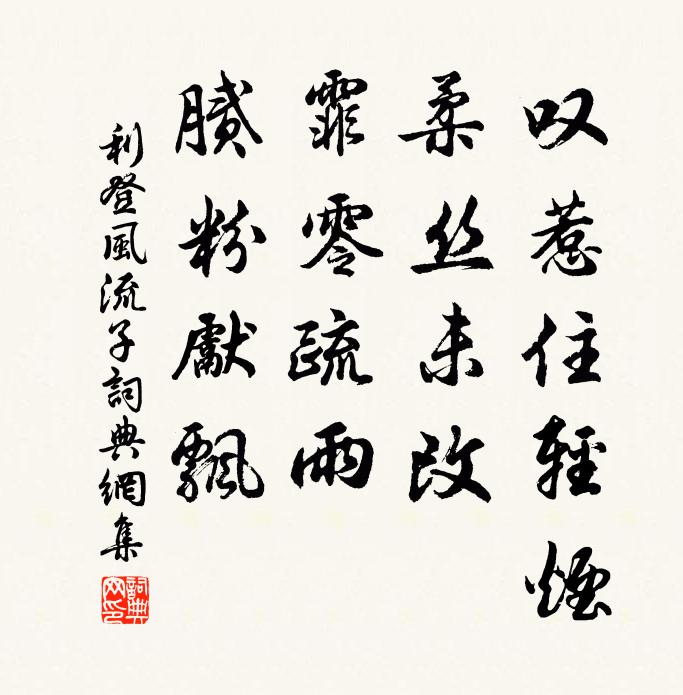 叹惹住輕煙
柔丝未改
霏零疏雨
膩粉獻飄
利登風流子詞典網集
詞典网印